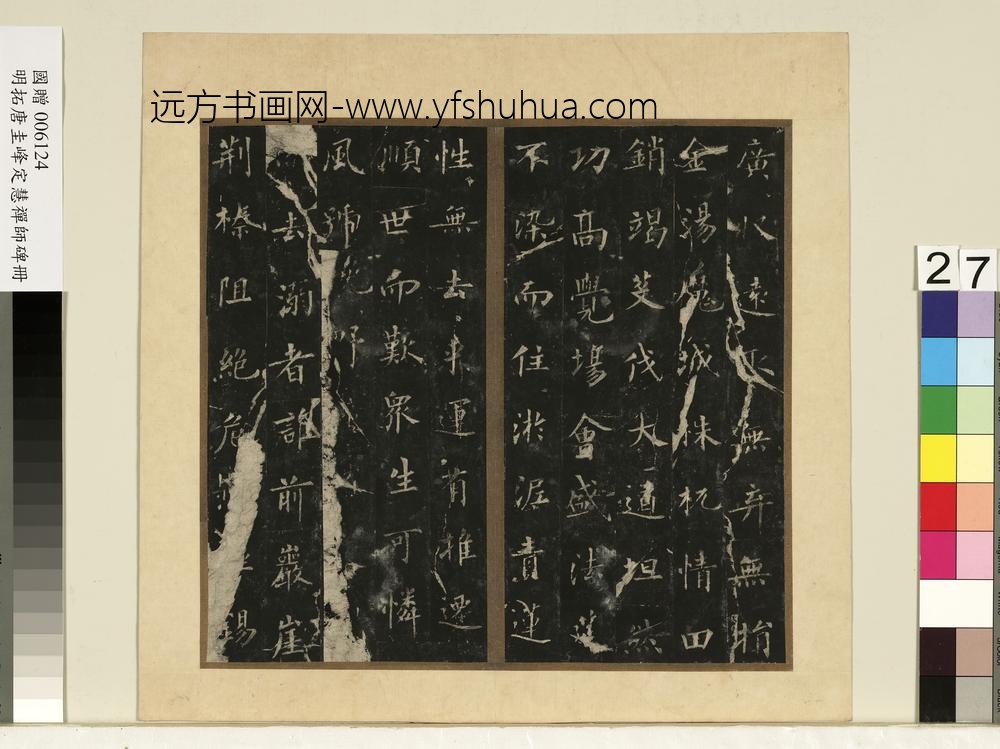 國贈 006124
明拓唐圭峰定慧禪師碑冊
远方书画网-www.yfshuhua.com
27
廣八遠無弃無
金湯魔城株杌情田
銷竭芟伐大道坦然
功高覺場會盛法
不染而住淤泥青蓮
性無去來運有推遷
順世而歎眾生可憐
風號曉野
去溺者誰前巖崖
荆榛阻絶危錫